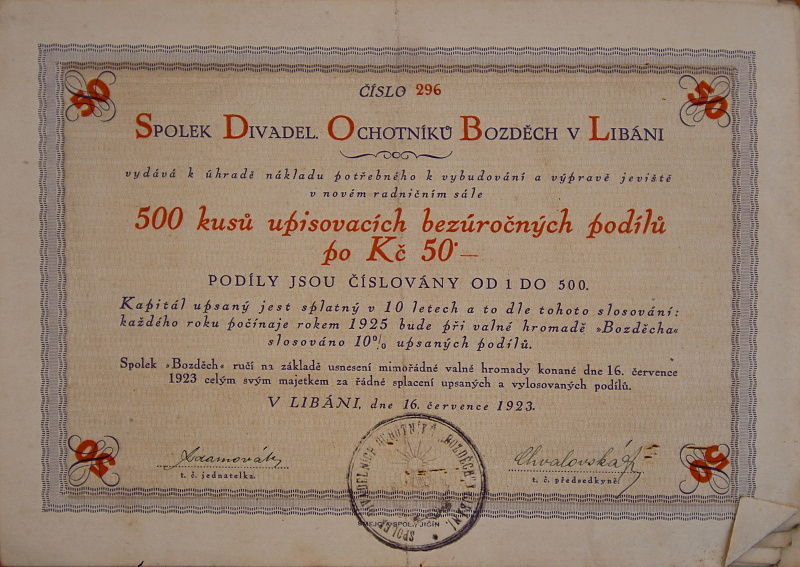 50
50
ČÍSLO 296
SPOLEK DIVADEL. OCHOTNÍKŮ BOZDĚCH V LIBÁNI
vydává k úhradě nákladu potřebného k vybudování a výpravě jeviště
v novém radničním sále
500 kusů upisovacích bezúročných podílů
po Kč 50·—
PODÍLY JSOU ČÍSLOVÁNY OD 1 DO 500.
Kapitál upsaný jest splatný v 10 letech a to dle tohoto slosování:
každého roku počínaje rokem 1925 bude při valné hromadě »Bozděcha«
slosováno 10% upsaných podílů.
Spolek »Bozděch« ručí na základě usnesení mimořádné valné hromady konané dne 16. července
1923 celým svým majetkem za řádné splacení upsaných a vylosovaných podílů.
V LIBÁNI, dne 16. července 1923.
50
50
t. č. jednatelka.
Chvalovská
t. č. předsedkyně.
SPOL. JIČÍN